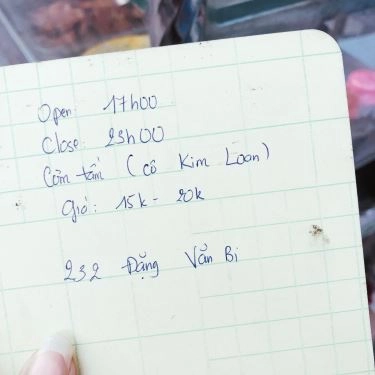 Open: 17h00
Close: 23h00
Cơm tấm ( cô Kim Loan)
Giá: 15k - 20k
232 Đặng Văn Bi